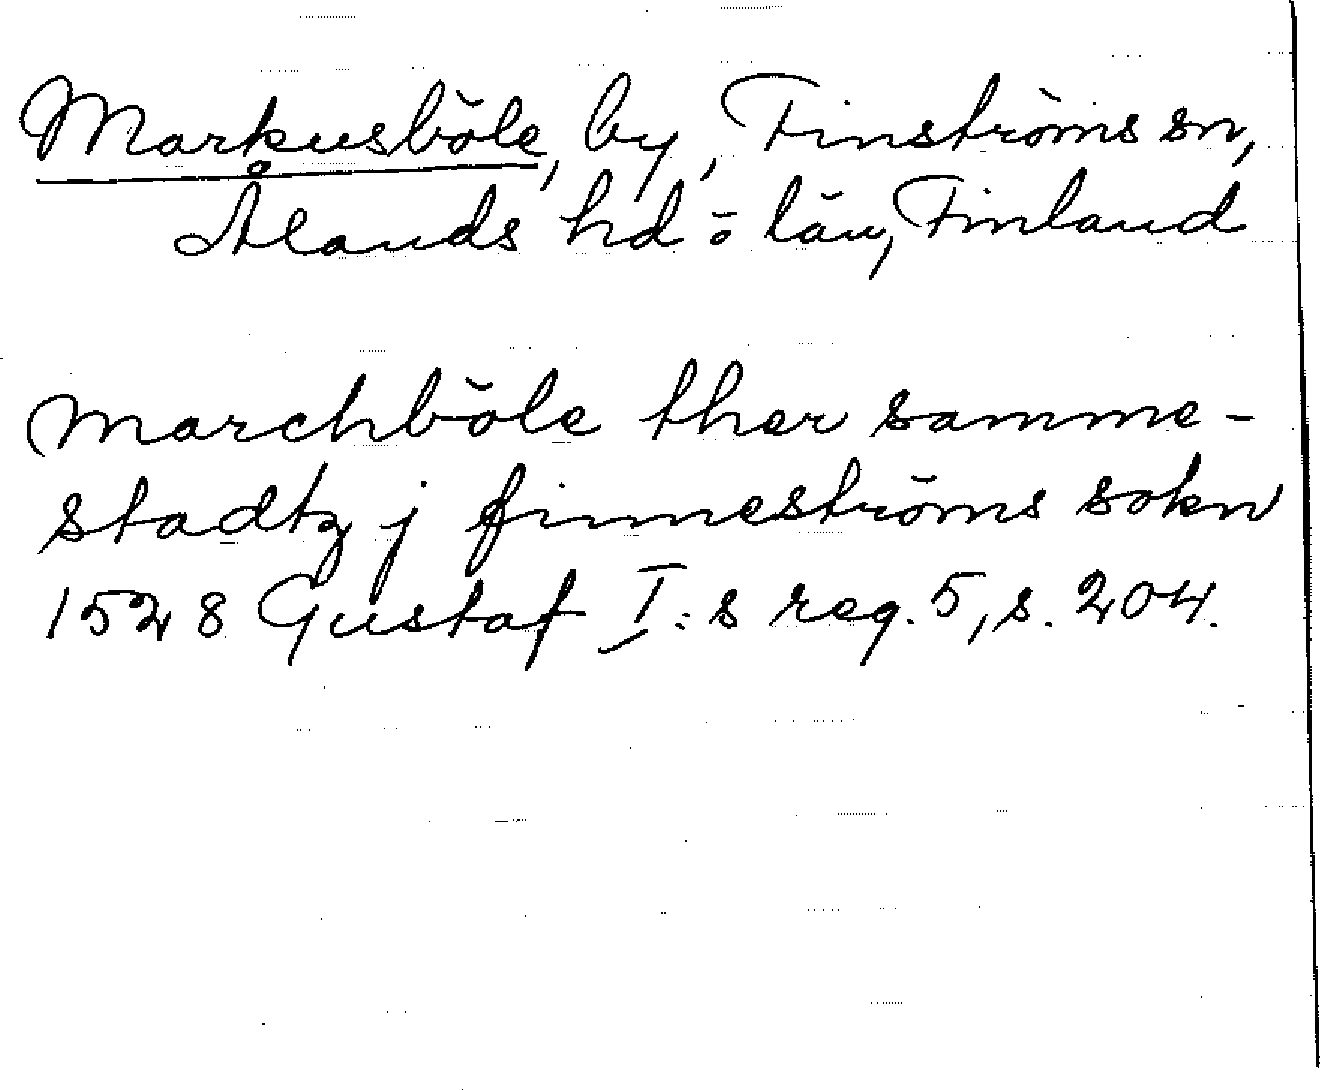 Markusböle, by, Finströms sn,
Ålands hd o län, Finland
Marchböle ther samme-
stadtz j finneströms sokn
1528 Gustaf I:s reg. 5, s. 204.